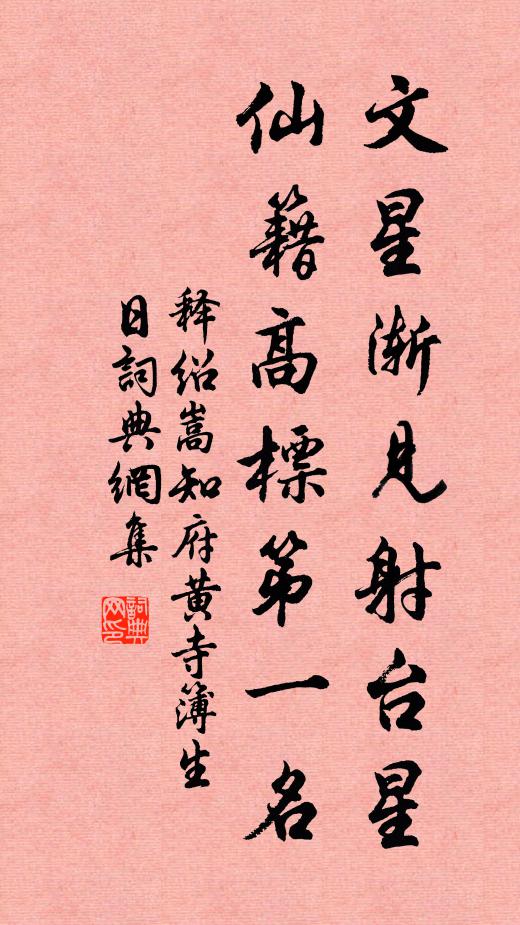 文星漸見射台星
仙籍高標第一名
释绍嵩知府黄寺簿生
日詞典網集
詞典網印